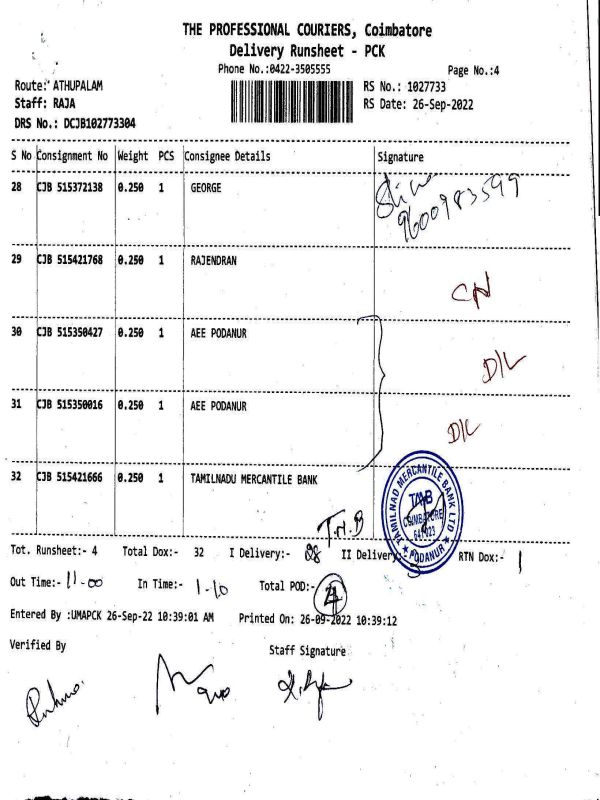 THE PROFESSIONAL COURIERS, Coimbatore
Delivery Runsheet - PCK
Phone No.:0422-3505555 Page No.:4
Route: ATHUPALAM RS No.: 1027733
Staff: RAJA RS Date: 26-Sep-2022
DRS No.: DCJB102773304
S No Consignment No Weight PCS Consignee Details Signature
28 CJB 515372138 0.250 1 GEORGE
9600983599
29 CJB 515421768 0.250 1 RAJENDRAN
CN
30 CJB 515350427 0.250 1 AEE PODANUR
D/L
31 CJB 515350016 0.250 1 AEE PODANUR
D/L
32 CJB 515421666 0.250 1 TAMILNADU MERCANTILE BANK
TAMILNAD MERCANTILE BANK LTD
TMB
COIMBATORE
641 023
PODANUR
T.N.B
Tot. Runsheet:- 4 Total Dox:- 32 I Delivery:- 28 II Delivery:- 3 RTN Dox:- 1
Out Time:- 11-00 In Time:- 1-10 Total POD:-
Entered By :UMAPCK 26-Sep-22 10:39:01 AM Printed On: 26-09-2022 10:39:12
Verified By Staff Signature